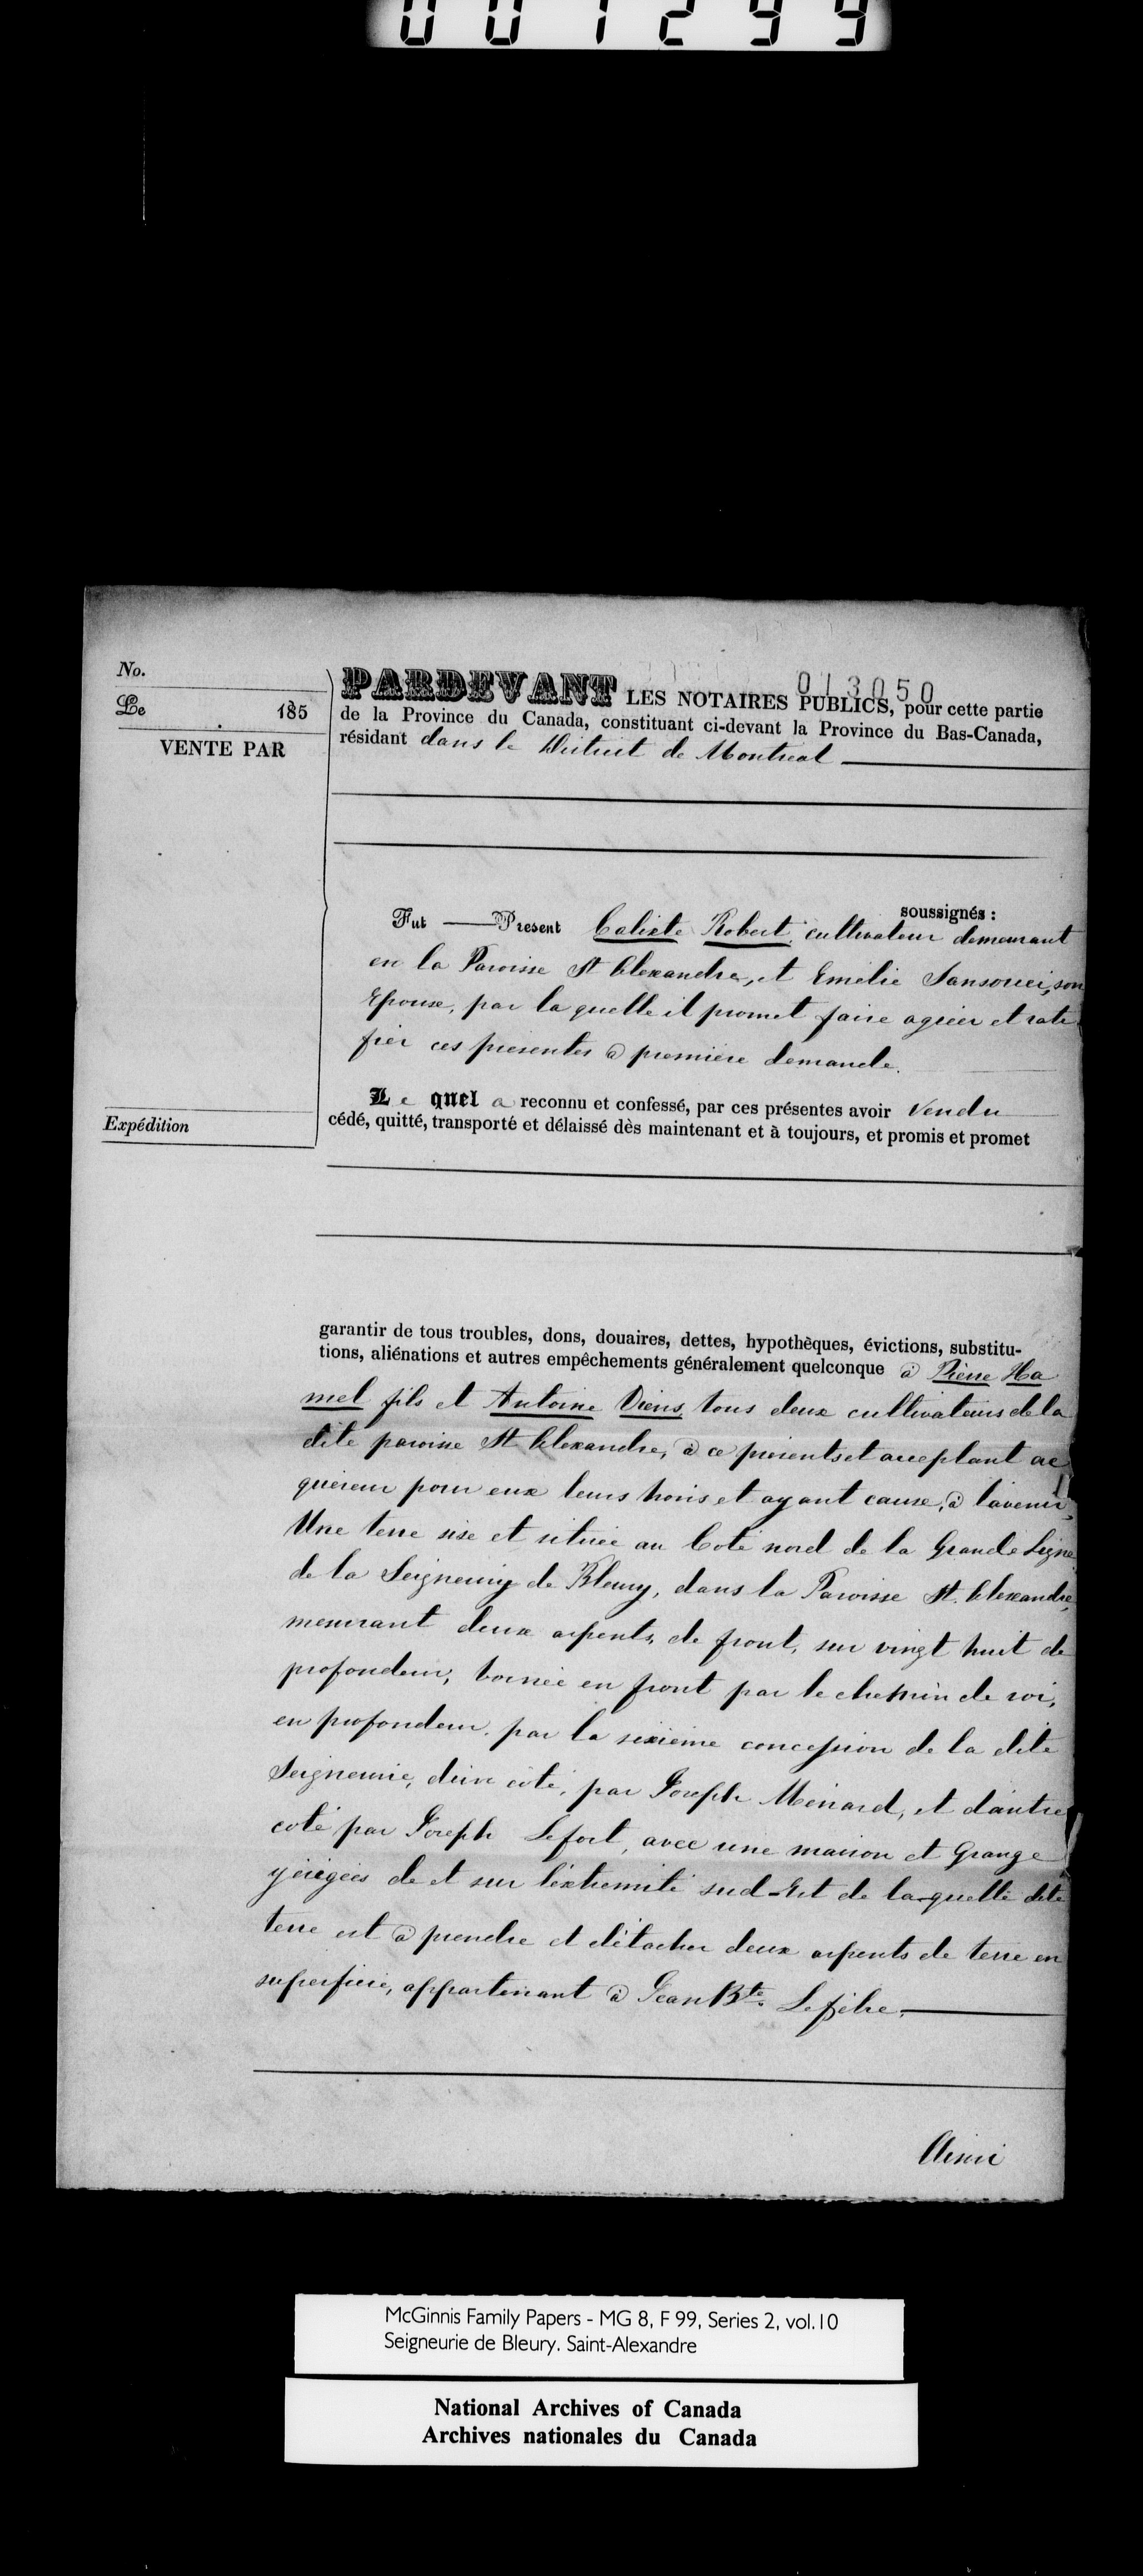 001299
No.
Le 185
VENTE PAR
Expédition
013050
PARDEVANT LES NOTAIRES PUBLICS, pour cette partie
de la Province du Canada, constituant ci-devant la Province du Bas-Canada,
résidant dans le District de Montreal
soussignés :
Fut Present Calixte Robert, cultivateur demeurant
en la Paroisse St Alexandre, et Emelie Sansouci, son
Epouse, par laquelle il promet faire agréer et rati
fier ces presentes à première demande.
Le quel a reconnu et confessé, par ces présentes avoir vendu
cédé, quitté, transporté et délaissé dès maintenant et à toujours, et promis et promet
garantir de tous troubles, dons, douaires, dettes, hypothèques, évictions, substitu-
tions, aliénations et autres empêchements généralement quelconque à Pierre Ha
mel fils et Antoine Viens, tous deux cultivateurs de la
dite paroisse St Alexandre, à ce présents et acceptant ac
quéreur pour eux leurs hoirs et ayant cause, à l'avenir,
Une terre sise et située au Coté nord de la Grande Ligne
de la Seigneurie de Bleury, dans la Paroisse St. Alexandre,
mesurant deux arpents, de front, sur vingt huit de
profondeur, bornée en front par le chemin de roi,
en profondeur par la sixième concession de la dite
Seigneurie, d'un côté, par Joseph Ménard, et d'autre
coté par Joseph Lefort, avec une maison et Grange
y érigées de et sur l'extremité sud-Est de laquelle dite
terre est à prendre et détacher deux arpents de terre en
superficie, appartenant à Jean Bte. Lefebre.
Ainsi
McGinnis Family Papers - MG 8, F 99, Series 2, vol.10
Seigneurie de Bleury. Saint-Alexandre
National Archives of Canada
Archives nationales du Canada